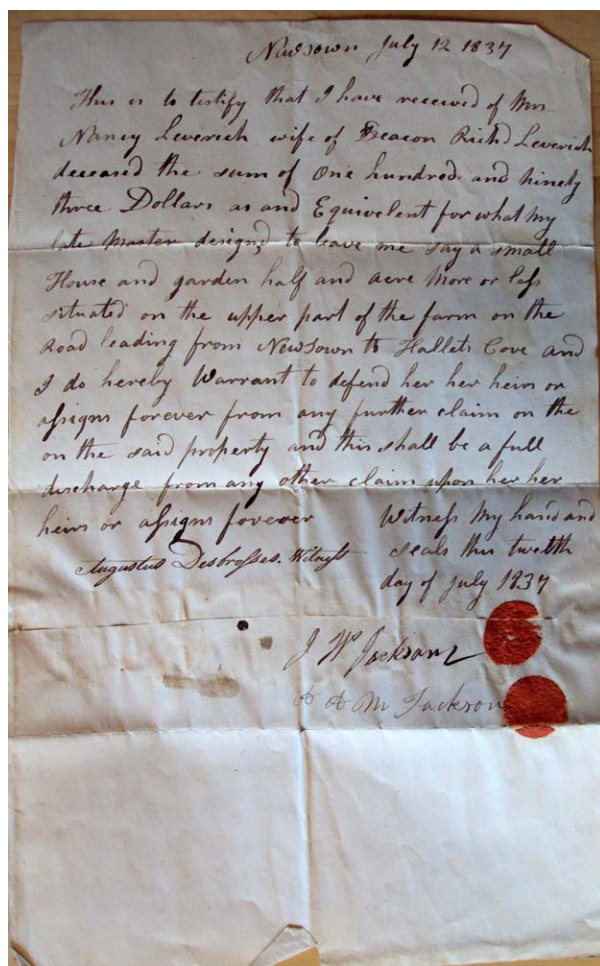 Newtown July 12 1837
This is to testify that I have received of Mrs
Nancy Leverich wife of Deacon Richd Leverich
deceased the sum of One hundred and ninety
three Dollars as and Equivelent for what my
late Master designd to leave me say a small
House and garden half and acre More or less
situated on the upper part of the farm on the
Road leading from Newtown to Hallets Cove and
I do hereby Warrant to defend her her heirs or
assigns forever from any further claim on the
on the said property and this shall be a full
discharge from any other claim upon her her
heirs or assigns forever Witness My hand and
Augustus Desbrosses. Witness seals this twelth
day of July 1837
J W Jackson
A M Jackson